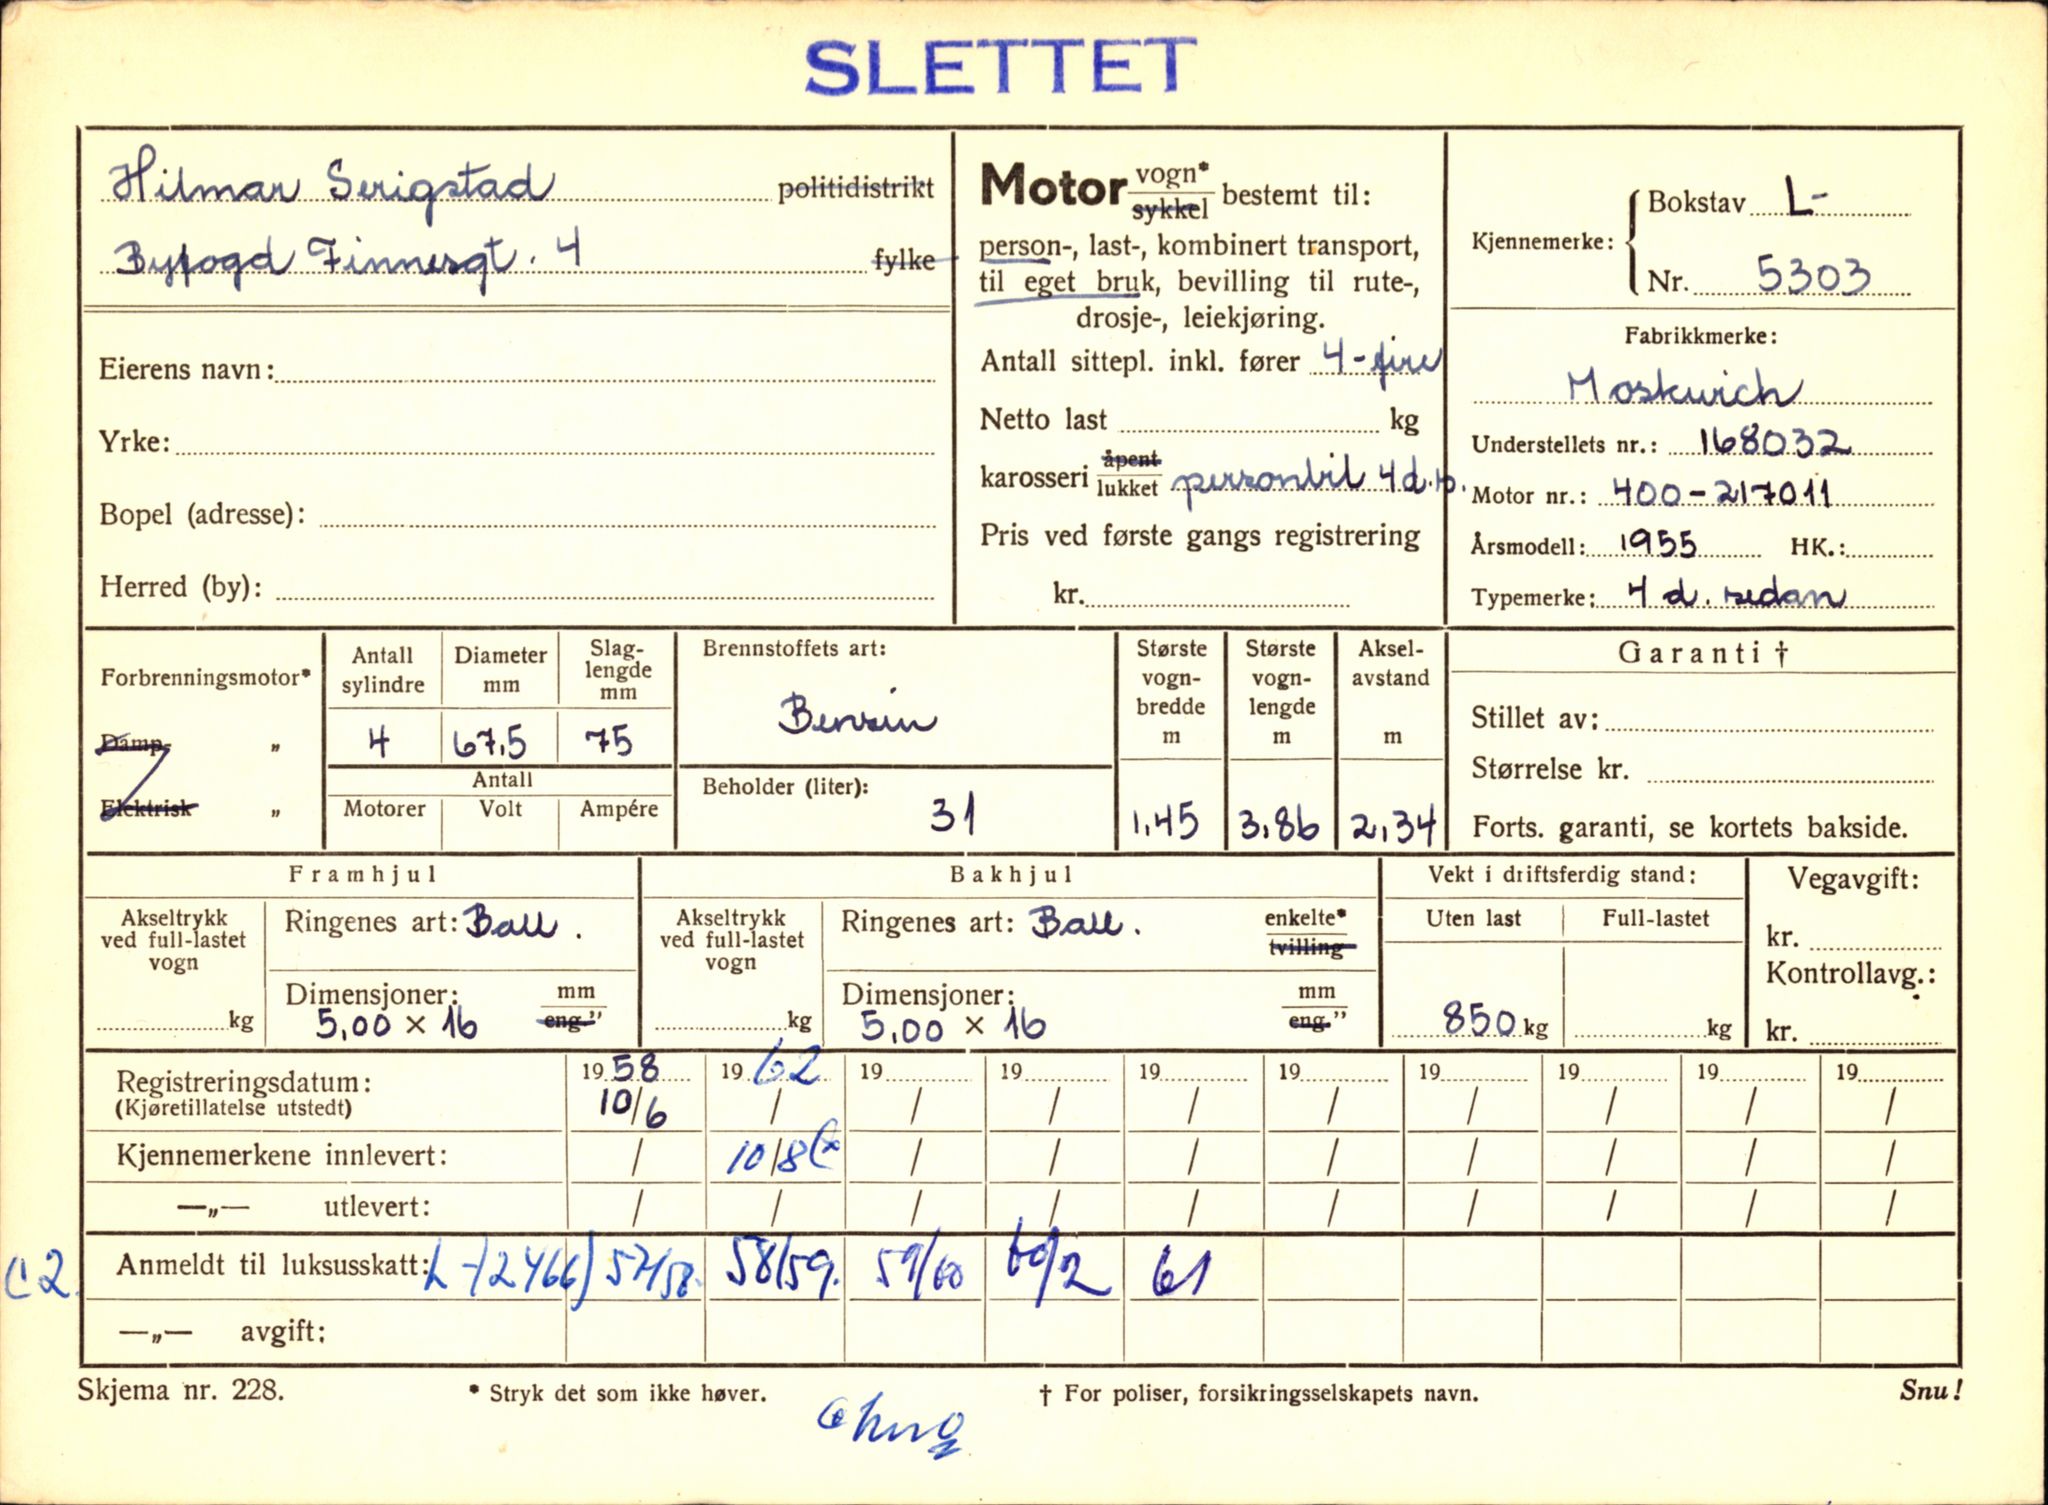 SLETTET
Hilmar Serigstad politidistrikt
Byfogd Finnesgt. 4 fylke
Eierens navn:
Yrke:
Bopel (adresse):
Herred (by):
Motor vogn* sykkel bestemt til:
person-, last-, kombinert transport,
til eget bruk, bevilling til rute-,
drosje-, leiekjøring.
Antall sittepl. inkl. fører 4-fire
Netto last kg
karosseri åpent lukket personbil 4 d.
Pris ved første gangs registrering
kr.
Kjennemerke: Bokstav L-
Nr. 5303
Fabrikkmerke:
Moskwich
Understellets nr.: 168032
Motor nr.: 400-217011
Årsmodell: 1955 HK.:
Typemerke: 4 d. sedan
Forbrenningsmotor*
Damp- „
Elektrisk „
Antall sylindre
Diameter mm
Slag-
lengde
mm
4 67,5 75
Antall
Motorer Volt Ampére
Brennstoffets art:
Bensin
Beholder (liter):
31
Største
vogn-
bredde
m
1,45
Største
vogn-
lengde
m
3,86
Aksel-
avstand
m
2,34
Garanti †
Stillet av:
Størrelse kr.
Forts. garanti, se kortets bakside.
Framhjul
Akseltrykk
ved full-lastet
vogn
kg
Ringenes art: Ball.
Dimensjoner: mm eng."
5,00 × 16
Bakhjul
Akseltrykk
ved full-lastet
vogn
kg
Ringenes art: Ball. enkelte* tvilling
Dimensjoner: mm eng."
5,00 × 16
Vekt i driftsferdig stand:
Uten last Full-lastet
850 kg kg
Vegavgift:
kr.
Kontrollavg.:
kr.
Registreringsdatum: 1958 1962 19 19 19 19 19 19 19 19
(Kjøretillatelse utstedt) 10/6 / / / / / / / / /
Kjennemerkene innlevert: / 10/8 / / / / / / / /
—„— utlevert: / / / / / / / / / /
C2. Anmeldt til luksusskatt: L-12466) 57/58. 58/59. 59/60 60/2 61
—„— avgift:
Skjema nr. 228. * Stryk det som ikke høver. † For poliser, forsikringsselskapets navn. Snu!